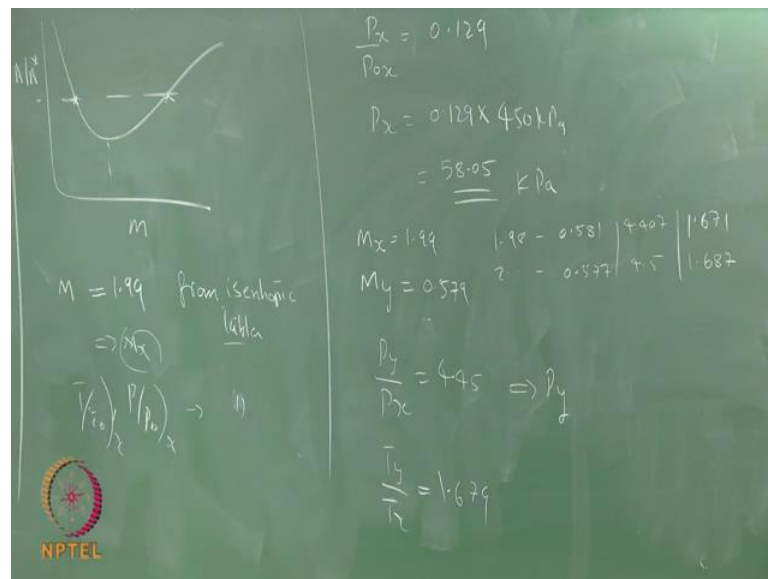 A/A*
M
M = 1.99 from isentropic
table
⇒ Mx
T/T0)x P/P0)x →
Px/P0x = 0.129
Px = 0.129 × 450 kPa
= 58.05 kPa
Mx = 1.99 1.98 - 0.581 | 4.407 | 1.671
My = 0.579 2. - 0.577 | 4.5 | 1.687
Py/Px = 4.45 ⇒ Py
Ty/Tx = 1.679
NPTEL